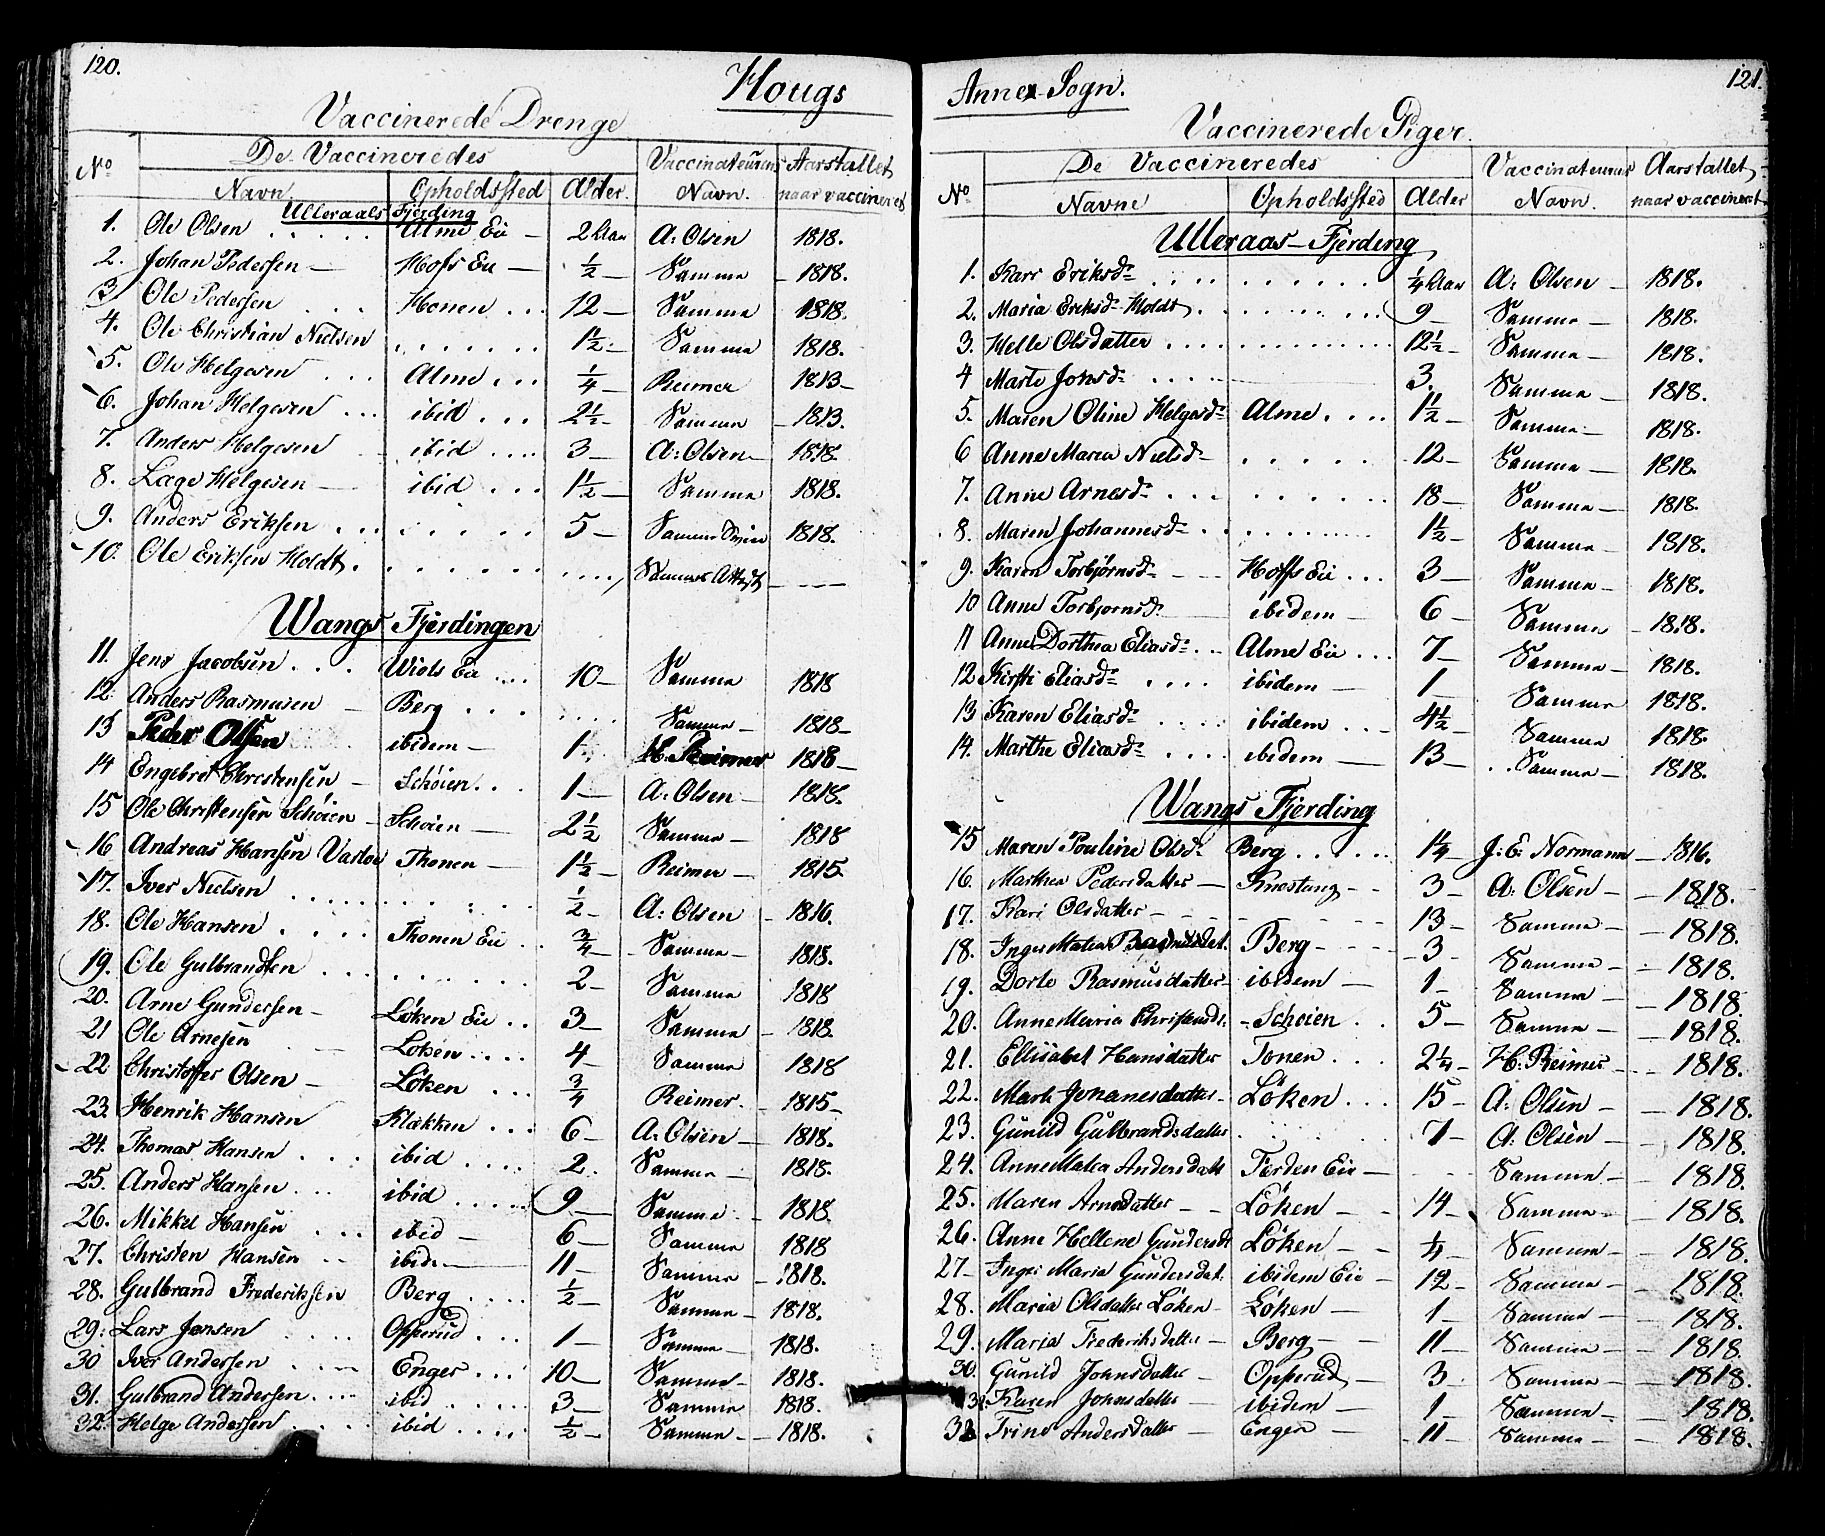 120.
Hougs
Vaccinerede Drenge
No De Vaccineredes Vaccinateurens Aarstallet
Navn Opholdssted Alder. Navn. naar vaccineret
Ulleraals Fjerding
1. Ole Olsen . . . . . Alme Eie — 2 Aar A: Olsen 1818.
2. Johan Pedersen — Hofs Eie — ½ — Samme — 1818.
3. Ole Pedersen . . . Honen . . . 12 — Samme 1818.
4. Ole Christian Nielsen . . . . . . . 1½ — Samme 1818.
5. Ole Helgesen . . . Alme . . . ¼ — Reimer 1813 —
6. Johan Helgesen . . . ibid . . . 2½ — Samme — 1813.
7. Anders Helgesen ibid . . . 3 — A: Olsen — 1818.
8. Lage Helgesen — ibid . . . 1½ — Samme 1818.
9. Anders Eriksen . . . . . . . . 5 — Samme 1818.
10. Ole Eriksen Holdt . . . . . . . . . . . . Sammes Attest — — — —
Wangs Fjerdingen
11. Jens Jacobsen . . . Wiels Eie . . . . 10 — Samme 1818
12. Anders Rasmusen — Berg . . . . . . . Samme — 1818 —
13 Peder Olsen ibidem — 1 — H. Reimer 1818 —
14 Engebret Christensen — Schøien . . . 1 — A: Olsen — 1818.
15 Ole Christensen Schøien — Schøien — 2½ Samme — 1818
16 Andreas Hansen Thonen — 1½ — Reimer — 1815
17. Iver Nielsen . . . . . . . . . . ½ — A: Olsen — 1816.
18. Ole Hansen . . . . Thonen Eie . . ¾ — Samme — 1818.
19. Ole Gulbrandsen . . . . . . . . 2 — Samme 1818
20. Arne Gundersen — Løken Eie . . 3 — Samme — 1818.
21 Ole Arnesen Løken . . . . 4 — Samme 1818
22 Christoffer Olsen — Løken . . . ¾ Reimer . — 1815 —
23. Henrik Hansen Klækken . . . 6 — A: Olsen — 1818.
24. Thomas Hansen . . . ibid . . . . 2. Samme — 1818.
25. Anders Hansen . . . ibid . . . . . 9 — Samme — 1818.
26. Mikkel Hansen . . . ibid — 6 — Samme 1818
27. Christen Hansen — ibidem — 11 — Samme — 1818.
28. Gulbrand Frederiksen Berg . . . . ½ — Samme — 1818.
29. Lars Jensen . . . . Opperud . . . 1 — Samme — 1818.
30 Iver Andersen . . . — Enger . . . 10 — Samme — 1818.
31. Gulbrand Andersen . . . . ibid . . . . . 3 — Samme — 1818.
32. Helge Andersen . . . . ibid . . . . ½ — Samme — 1818.
121.
Annex Sogn.
Vaccinerede Piger.
No De Vaccineredes Vaccinateurens Aarstallet
Navne Opholdssted Alder Navn. naar vaccineret
Ulleraas — Fjerding
1. Kari Eriksdr . . . . . . . . . . ¼ Aar A: Olsen — 1818.
2. Maria Eriksdr Holdt . . . . . . . . . 9 — Samme — 1818.
3. Helle Olsdatter . . . . . . . . . . . . . 12½ — Samme — 1818.
4 Marte Johsdr . . . . 3. Samme — 1818.
5. Maren Oline Helgesdr Alme . . . . 1½ — Samme — 1818.
6 Anne Maria Nielsdr . . . . . 12 — Samme — 1818.
7. Anne Arnesdr . . . . . . . . 18 — Samme — 1818.
8. Maren Johannesdr . . . . . . . . . . . 1½ — Samme — 1818.
9. Karen Torbjørnsdr — — — Hoffs Eie . . . 3 — Samme — 1818.
10 Anne Torbjørnsdr ibidem — 6 — Samme — 1818.
11 Anne Dorthea Eliasdr . . . Alme Eie . . . 7 — Samme — 1818.
12 Kirsti Eliasdr . . . . ibidem — 1 — Samme 1818.
13 Karen Eliasdr . . . . ibidem . . — 4½ — Samme 1818.
14. Marthe Eliasdr . . . . ibidem — 13 — . . Samme — 1818.
Wangs Fjerding
15 Maren Pouline Olsdr Berg . . . . . 1¼ — J: C: Normann — 1816.
16. Marthea Pedersdatter — Knestang — — 3 — A: Olsen — — 1818.
17. Kari Olsdatter — — — — — — — 13 — Samme — — 1818.
18. Inger Malea Rasmusdat. Berg — — — — 3 — Samme — — 1818.
19. Dorte Rasmusdatter — ibidem — 1 — Samme — — 1818.
20. Anne Maria Christensdr. — Schøien . . 5 — Samme — — 1818.
21. Ellisabet Hansdatter Tonen . . . 2¼ — H. Reimer — . . 1818.
22. Marte Johanesdatter — Løken . . . 15 — A: Olsen — — 1818.
23. Gunild Gulbrandsdatter . . . . . . . . 7 — A: Olsen — — 1818.
24. Anne Malea Andersdatt Eie — . . . . Samme — 1818.
25. Maren Arnsdatter — — Løken — — 14 — Samme — — 1818.
26. Anne Hellene Gundersdt Løken — — ¼ — Samme — — 1818.
27 — Inger Maria Gundersdat. ibidem Eie — 12 — Samme — — 1818.
28. Maria Olsdatter Løken — Løken — 1 — Samme — — 1818.
29. Maria Frederiksdatter — Berg — — 11 — Samme — — 1818.
30. Gunild Johnsdatter — Opperud — 3. Samme — — 1818.
31 Karen Johnsdatter — ibidem — 1 — Samme — — 1818.
32 Trine Andersdatter — Enger — — 11 — Samme — — 1818.